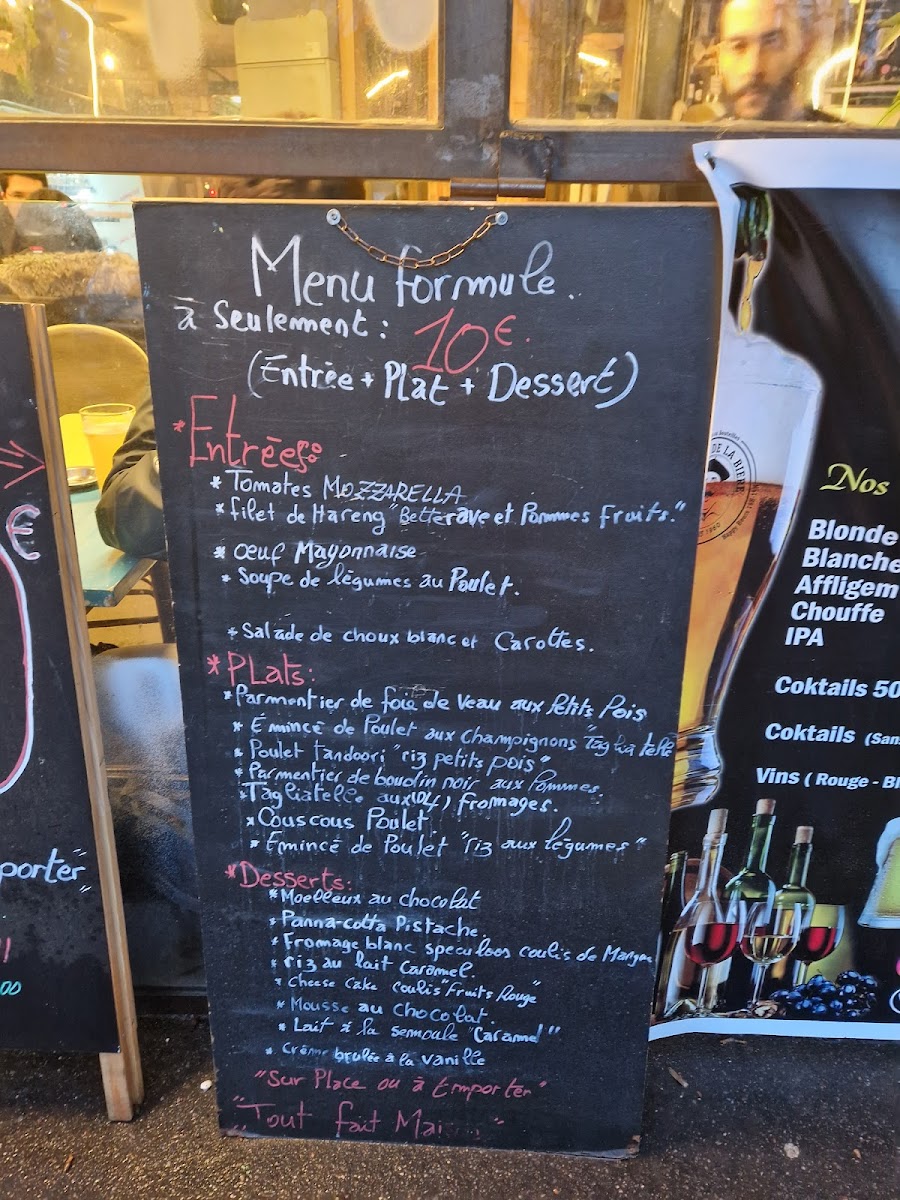 Menu formule.
à Seulement : 10€.
(Entrée + Plat + Dessert)
*Entrées:
* Tomates MOZZARELLA
* filet de Hareng "Betterave et Pommes Fruits."
* Œuf Mayonnaise
* Soupe de légumes au Poulet.
* Salade de choux blanc et Carottes.
* PLATS:
* Parmentier de foie de Veau aux Petits Pois
* Emincé de Poulet aux champignons "Tagliatelle
* Poulet tandoori "riz petits pois"
* Parmentier de boudin noir aux Pommes.
* Tagliatelle aux (04) fromages.
* Couscous Poulet
* Emincé de Poulet "riz aux légumes"
*Desserts:
* Moelleux au chocolat
* Panna-cotta Pistache.
* Fromage blanc speculoos coulis de
* riz au lait Caramel.
* Cheese Cake coulis "Fruits Rouge"
* Mousse au Chocolat.
* Lait à la semoule "Caramel"
* Crème brulée à la vanille
"Sur Place ou à Emporter"
"Tout fait
€
porter"
00
DE LA BIERE
Nos
Blonde
Blanche
Affligem
Chouffe
IPA
Coktails 50
Coktails (San
Vins ( Rouge - Bl